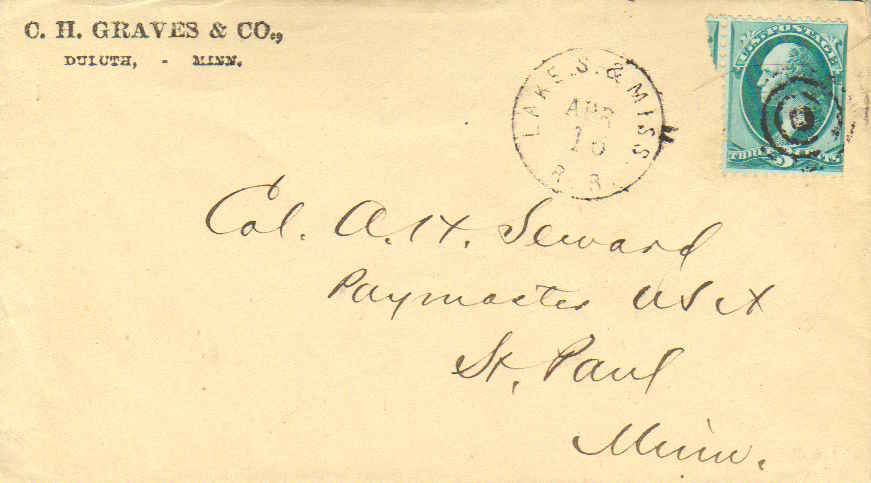 C. H. GRAVES & CO.,
DULUTH, - MINN.
LAKE. S. & MISS
APR
10
R. R.
U.S. POSTAGE
THREE 3 CENTS
Col. A. H. Seward
Paymaster U S A
St. Paul
Minn.